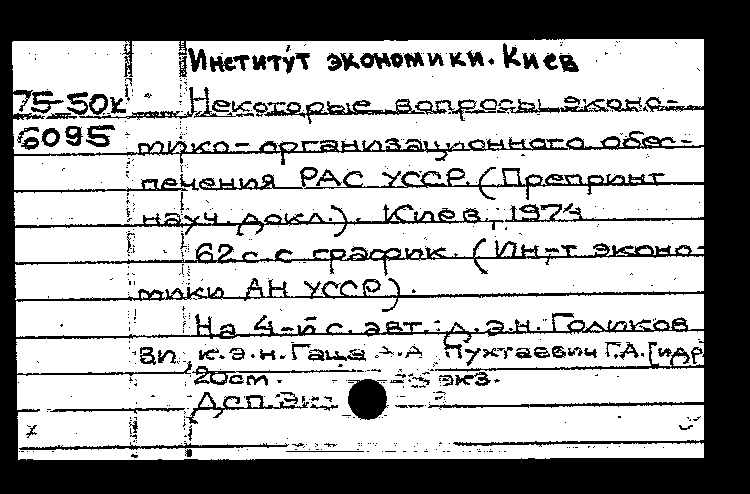 Институт экономики. Киев
75-50к Некоторые вопросы эконо-
6095 мико-организационного обес-
печения РАС УССР. (Препринт
науч. докл.). Киев, 1974
62 с. с график. (Ин-т эконо-
мики АН УССР).
На 4-й с. авт.: д.э.н. Голиков
В.П., к.э.н. Гаца А.А., Пухтаевич Г.А. [и др.
20 см. экз.
Дсп. Экз.